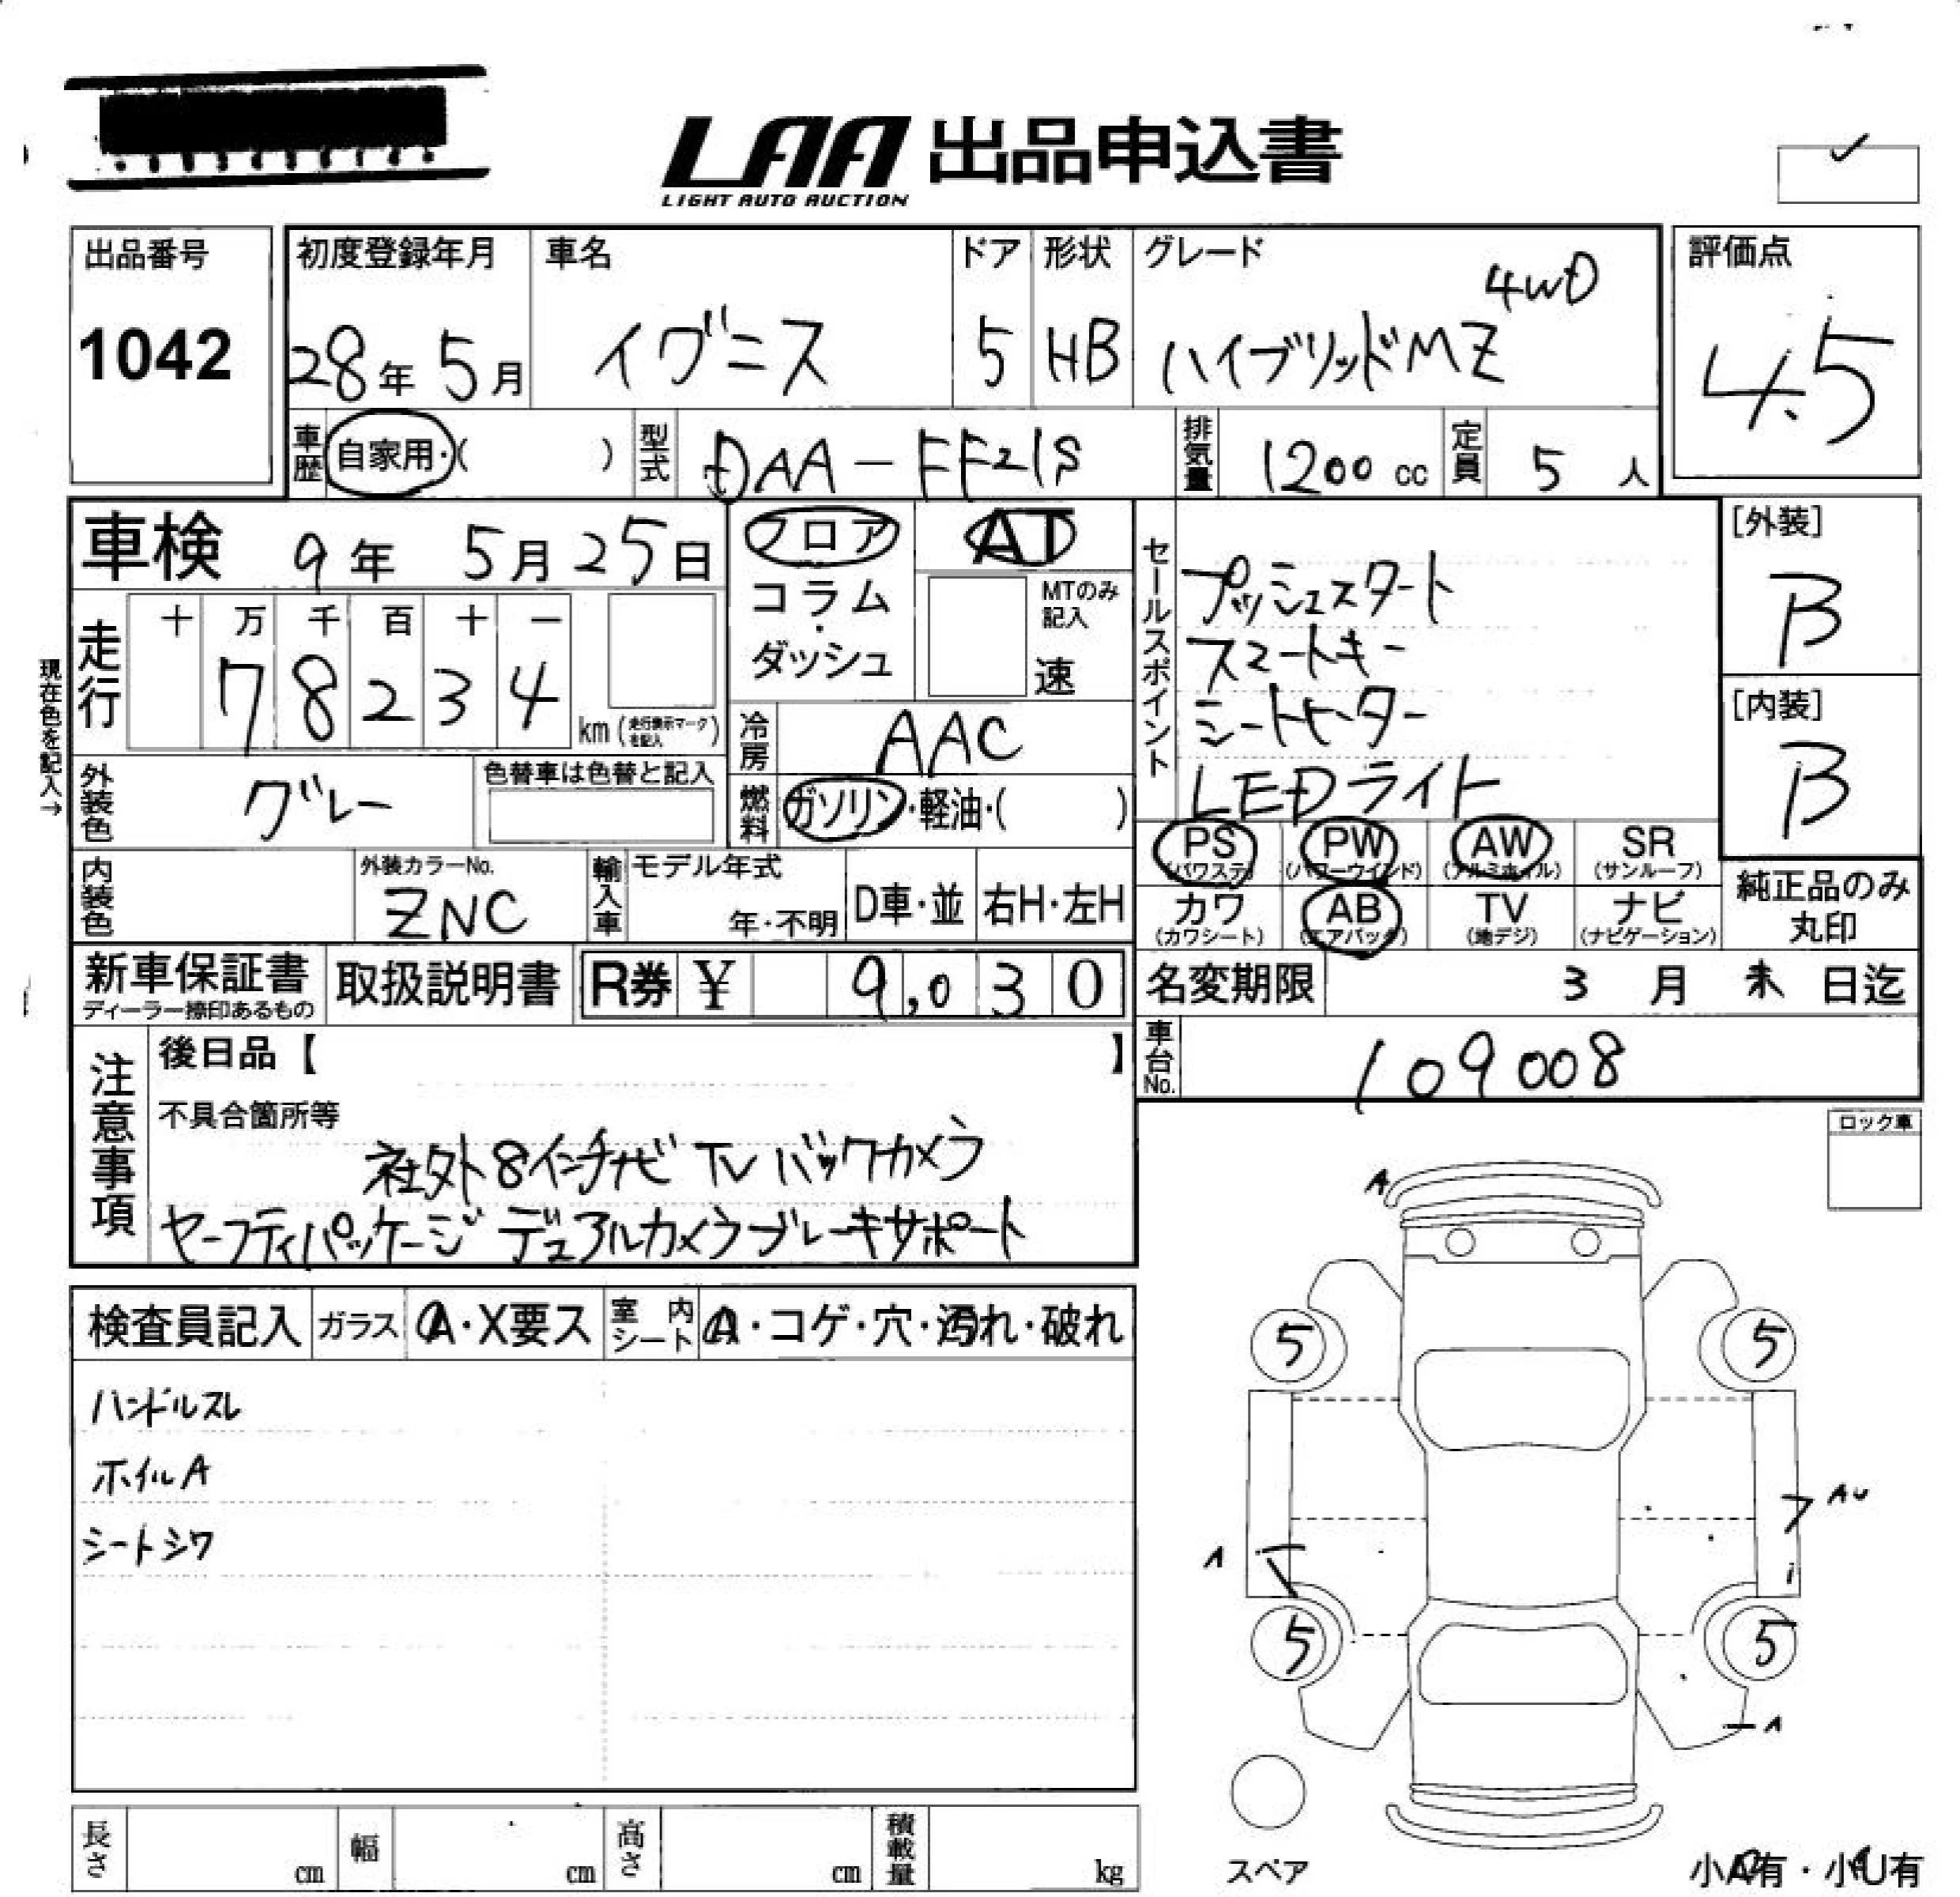 LAA 出品申込書
LIGHT AUTO AUCTION
出品番号
1042
初度登録年月
28年 5月
車名
イグニス
ドア
5
形状
HB
グレード
4WD
ハイブリッドMZ
評価点
4.5
車歴
自家用・( )
型式
DAA-FF21S
排気量
1200 cc
定員
5 人
車検 9年 5月25日
フロア
コラム
・
ダッシュ
AT
MTのみ
記入
速
セールスポイント
プッシュスタート
スマートキー
シートヒーター
LEDライト
[外装]
B
[内装]
B
現在色を記入→
走行
十 万 千 百 十 一
7 8 2 3 4
km (走行表示マークを記入)
冷房
AAC
外装色
グレー
色替車は色替と記入
燃料
ガソリン・軽油・( )
PS PW AW SR
(パワステ) (パワーウインド) (アルミホイル) (サンルーフ)
カワ AB TV ナビ
(カワシート) (エアバック) (地デジ) (ナビゲーション)
純正品のみ
丸印
内装色
外装カラーNo.
ZNC
輸入車
モデル年式
年・不明
D車・並
右H・左H
新車保証書
ディーラー捺印あるもの
取扱説明書
R券 ¥ 9,030
名変期限 3 月 末 日迄
車台No.
109008
注意事項
後日品【 】
不具合箇所等
社外8インチナビ TV バックカメラ
セーフティパッケージ デュアルカメラブレーキサポート
ロック車
検査員記入
ガラス
A・X要ス
室内シート
A・コゲ・穴・汚れ・破れ
ハンドルスレ
ホイルA
シートシワ
A
5 5
AU
A
5 5
A
スペア
小A有・小U有
長さ cm
幅 cm
高さ cm
積載量 kg